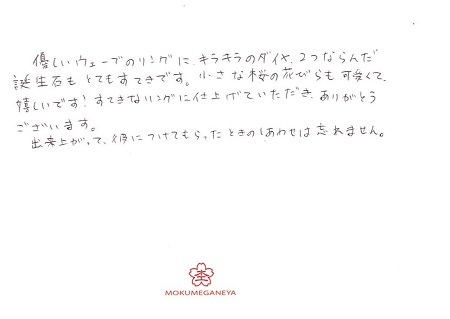 優しいウェーブのリングに、キラキラのダイヤ、2つならんだ
誕生石もとてもすてきです。小さな桜の花びらも可愛くて、
嬉しいです!すてきなリングに仕上げていただき、ありがとう
ございます。
出来上がって、彼につけてもらったときのしあわせは忘れません。
MOKUMEGANEYA